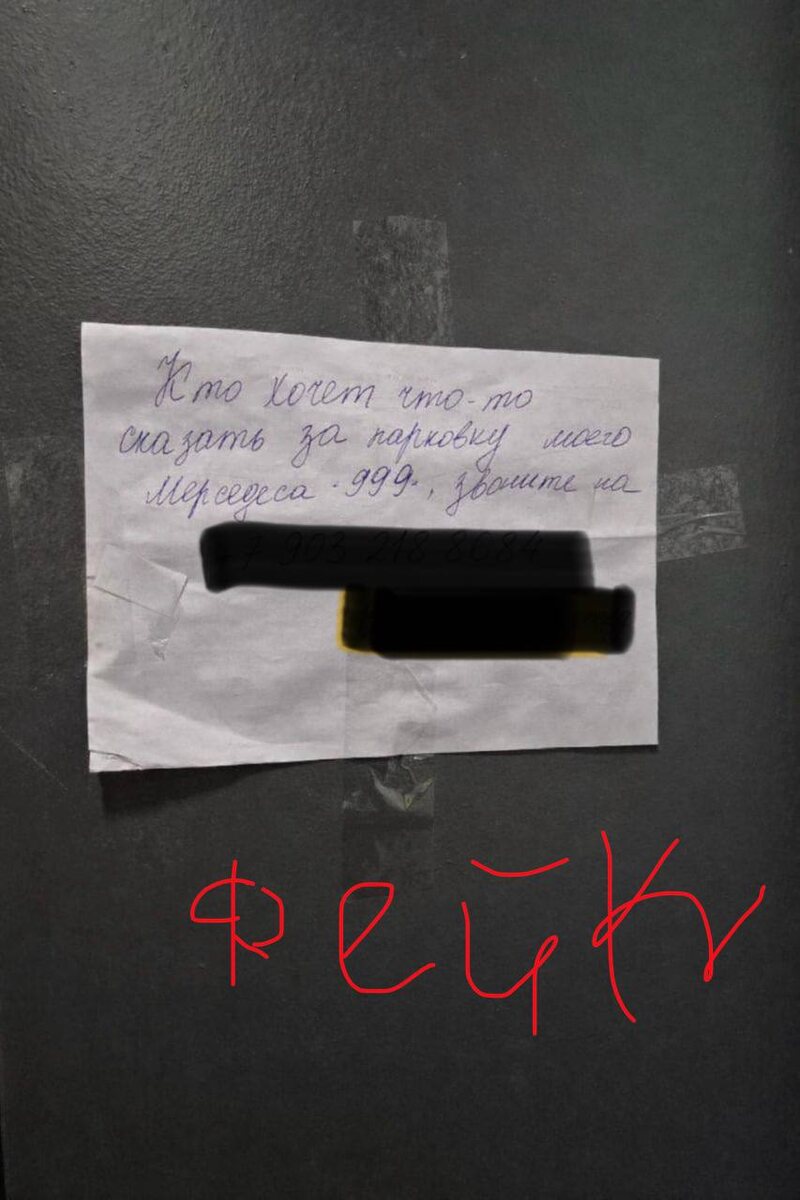 Кто хочет что-то
сказать за парковку моего
Мерседеса "999", звоните на
фейк